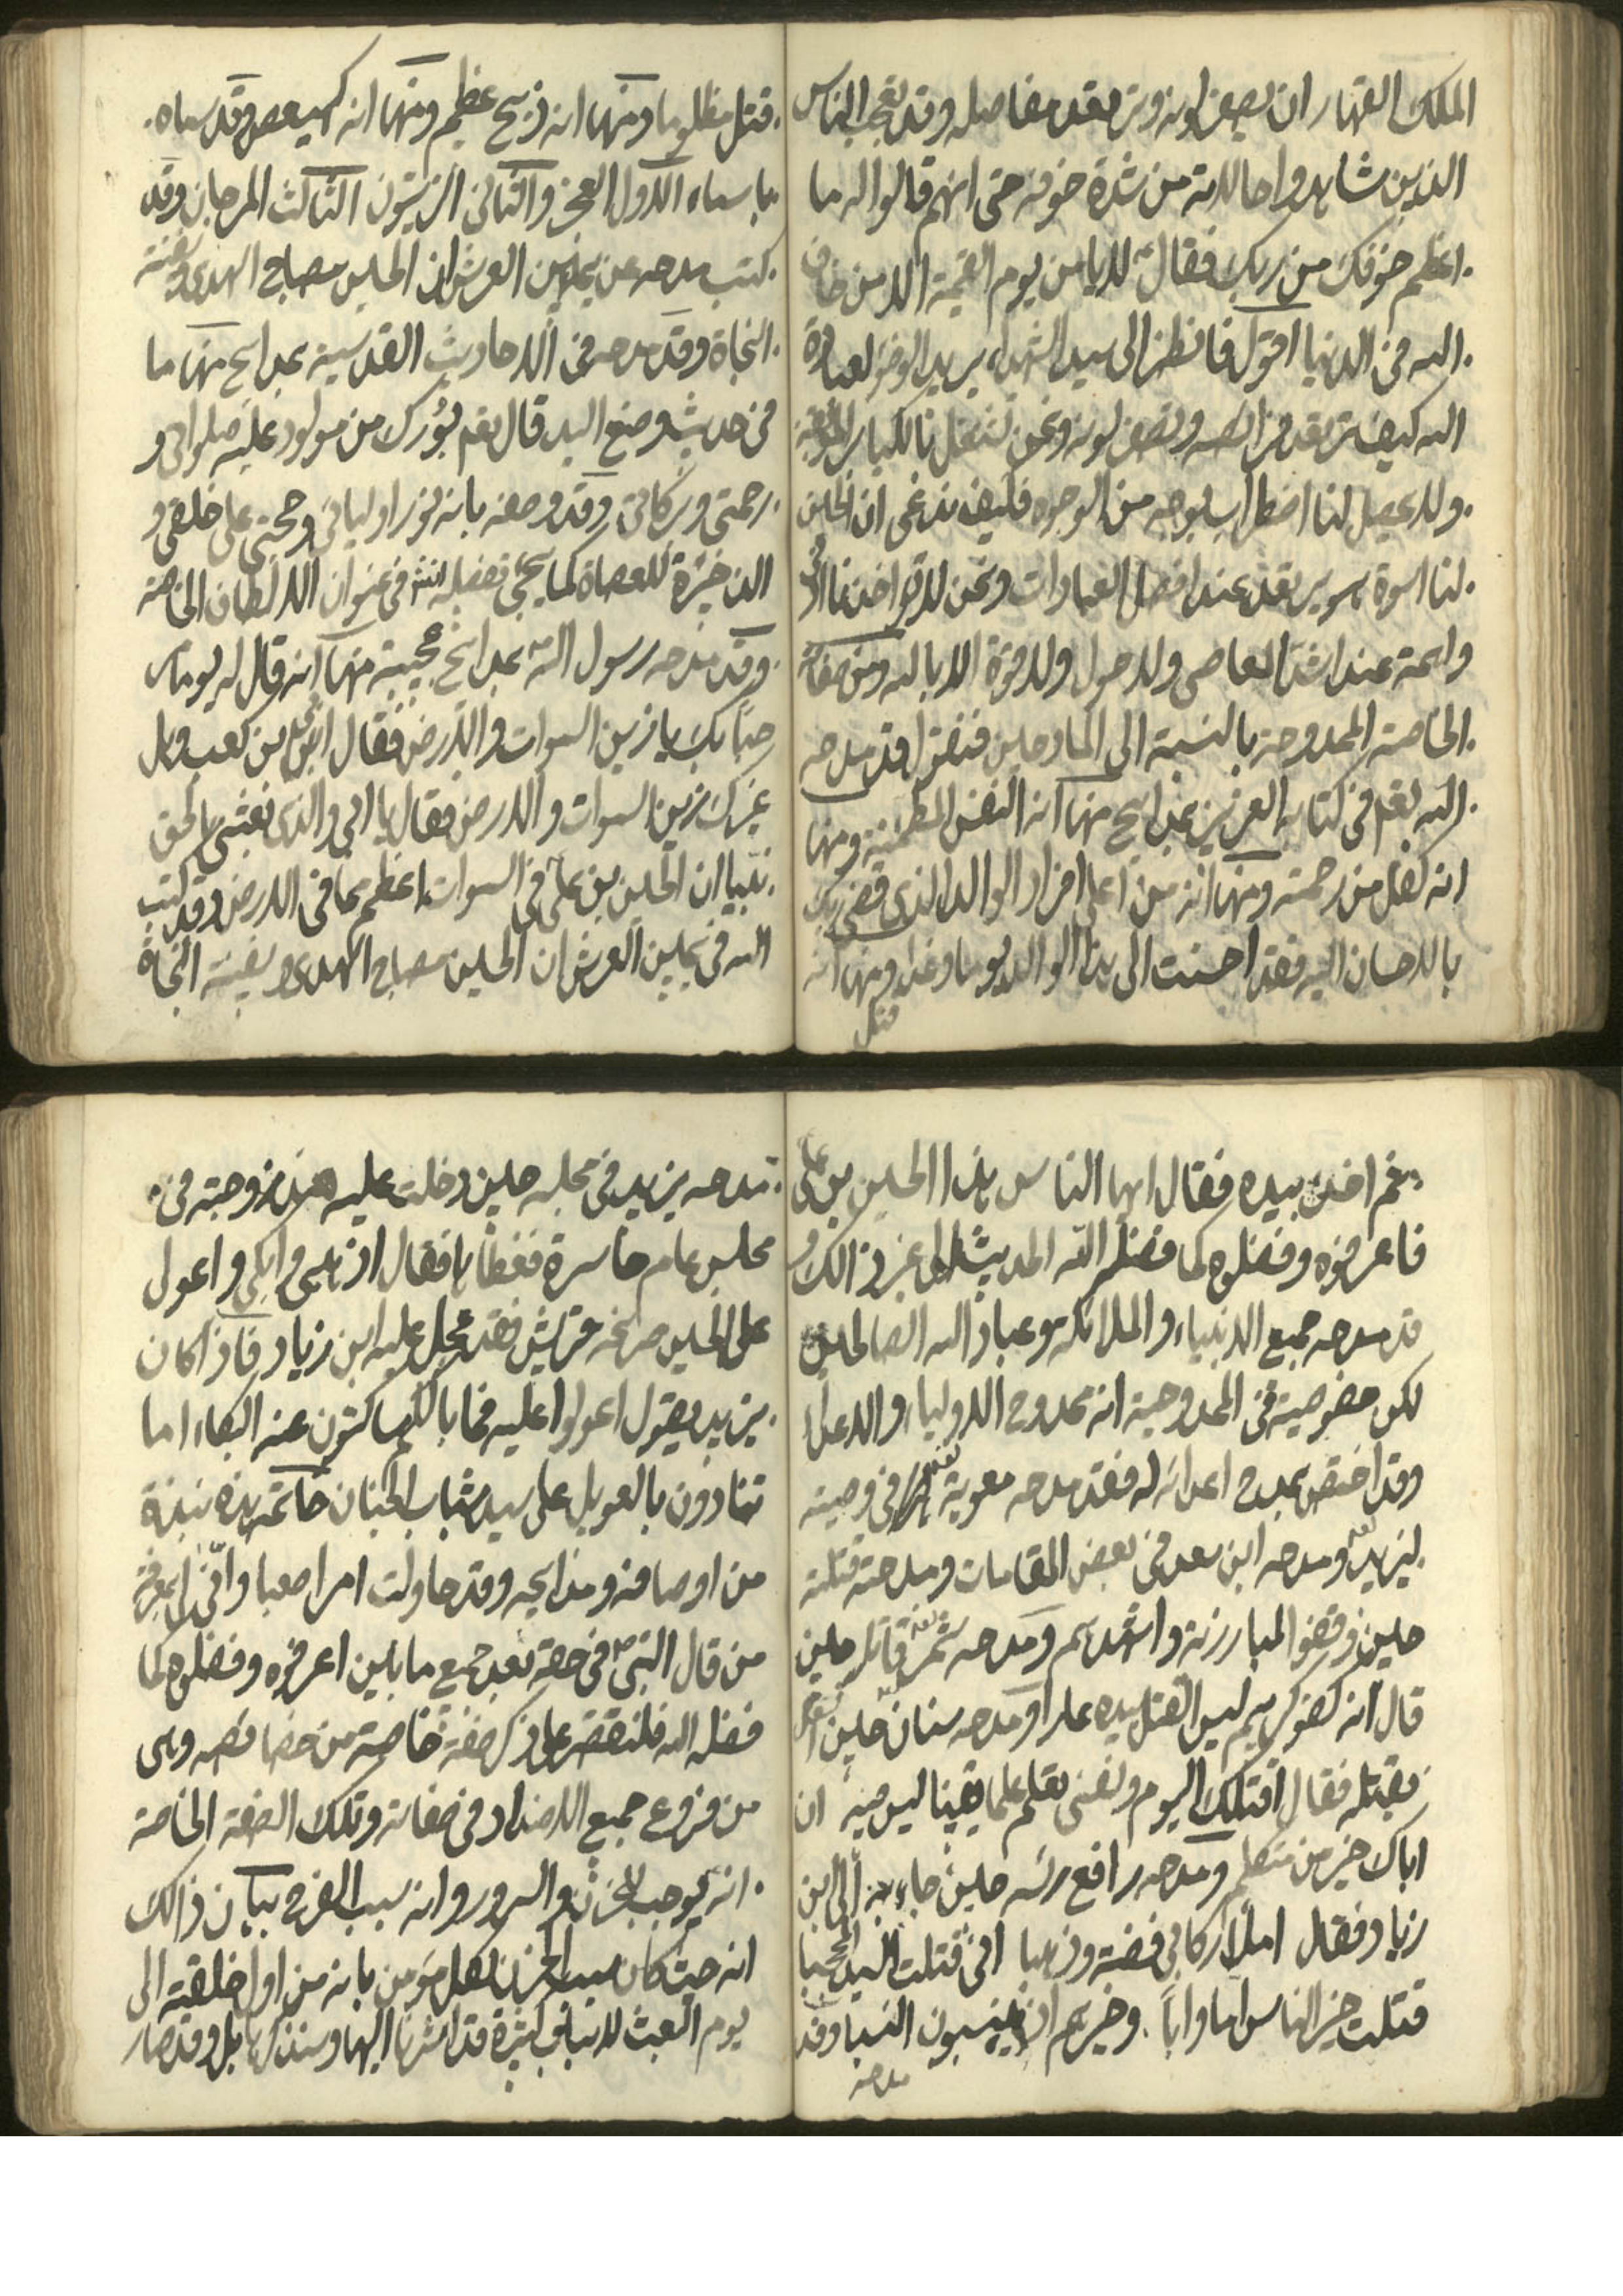 الملك القهار ان يصفر لونه وترتعد مفاصله وقد تعجب الناس
الذين شاهدوا حالاته من شدة خوفه حتى انهم قالوا له ما
اعظم خوفك من ربك فقال لا يامن يوم القيمة الا من خاف
الله في الدنيا اقول فانظر الى سيد الشهداء يريد الوضوء لعبادة
الله كيف ترتعد فرائصه ويصفر لونه ونحن نشتغل بالكبائر الموبقة
ولا يحصل لنا اضطراب بوجه من الوجوه فكيف ندعي ان الحسين
لنا اسوة هو يرتعد عند افضل العبادات ونحن لا تواخذنا
واهمة عند اشد المعاصي ولا حول ولا قوة الا بالله ومن صفاته
الخاصة الممدوحية بالنسبة الى المادحين فنقول قد مدحه
الله تعم في كتابه العزيز بمدايح منها انه النفس المطمئنة ومنها
انه كفل من رحمته ومنها انه من اعلى افراد الوالد الذي قضى ربك
بالاحسان اليه فقد احسنت الى هذا الوالد يوما وغدا ومنها انه
قتل
قتل مظلوما ومنها انه ذبح عظيم ومنها انه كهيعص وقد سماه
باسماء الاول الفجر والثاني الزيتون الثالث المرجان وقد
كتب مدحه عن يمين العرش ان الحسين مصباح الهدى وسفينة
النجاة وقد مدحه في الاحاديث القدسية بمدايح منها ما
في حديث وضع اليد قال تعم بورك من مولود عليه صلواتي و
رحمتي وبركاتي وقد وصفه بانه نور اوليائي وحجتي على خلقي و
الذخيرة للعصاة كما يجيء تفصيله انش في عنوان الالطاف الخاصة
وقد مدحه رسول الله بمدايح عجيبة منها انه قال له يوما مر
حبا بك يا زين السموات والارض فقال ابي بن كعب وهل
غيرك زين السموات والارض فقال يا ابي والذي بعثني بالحق
نبيا ان الحسين بن علي في السموات اعظم مما في الارض وقد كتب
الله في يمين العرش ان الحسين مصباح الهدى وسفينة النجاة
ثم اخذ بيده فقال ايها الناس هذا الحسين بن علي
فاعرفوه وفضلوه كما فضله الله الحديث الى غير ذالك و
قد مدحه جميع الانبياء والملائكة وعباد الله الصالحين
لكن خصوصيته في الممدوحية انه ممدوح الاولياء والاعداء
وقد اختص بمدح اعدائه له فقد مدحه معوية في وصيته
ليزيد ومدحه ابن سعد في بعض المقامات ومدحته قتلته
حين وقفوا لمبارزته واستشهدهم ومدحه شمر قاتله حين
قال انه كفو كريم ليس القتل بيده عارا ومدحه سنان حين
يقتله فقال اقتلك اليوم ونفسي تعلم علما يقينا ليس فيه ان
اباك خير من متكلم ومدحه رافع رئسه حين جاء به الى ابن
زياد فقال املأ ركابي فضة وذهبا اني قتلت السيد المحجبا
قتلت خير الناس اما وابا وخيرهم اذ ينسبون النسبا وقد
مدحه
مدحه يزيد في مجلسه حين دخلت عليه هند زوجته في
مجلس عام حاسرة فغطاها فقال اذهبي وابكي واعول
على الحسين صريخة قريش فقد عجل عليه ابن زياد فاذا كان
يزيد يقول اعولوا عليه فما بالكم ساكتون عنه البكاء اما
تنادون بالعويل على سيد شباب الجنان خاتمة هذه نبذة
من اوصافه ومدايحه وقد حاولت امرا صعبا وانى لي بمعرفة
من قال النبي في حقه بعد جميع ما بين اعرفوه وفضلوه كما
فضله الله فلنقتصر على ذكر صفة خاصة من خصائصه وهي
من فروع جميع الاضداد في صفاته وتلك الصفة الخاصة
انه يوجب الحزن والسرور وانه سبب الفرح بيان ذالك
انه حيث كان سبب الحزن لكل مومن بانه من اول خلقته الى
يوم البعث لاسباب كثيرة قد اشرنا اليها وسنذكرها بل وقد صار